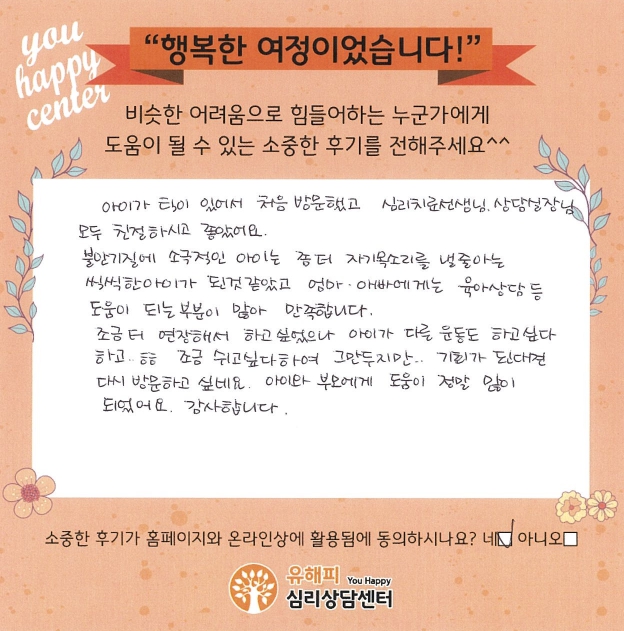 you
happy
center
“행복한 여정이었습니다!”
비슷한 어려움으로 힘들어하는 누군가에게
도움이 될 수 있는 소중한 후기를 전해주세요^^
아이가 틱이 있어서 처음 방문했고 심리치료선생님, 상담실장님
모두 친절하시고 좋았어요.
불안기질에 소극적인 아이는 좀 더 자기목소리를 낼줄아는
씩씩한아이가 된것같았고 엄마·아빠에게는 육아상담 등
도움이 되는부분이 많아 만족합니다.
조금 더 연장해서 하고싶었으나 아이가 다른 운동도 하고싶다
하고.. ㅎㅎ 조금 쉬고싶다하여 그만두지만.. 기회가 된다면
다시 방문하고 싶네요. 아이와 부모에게 도움이 정말 많이
되었어요. 감사합니다.
소중한 후기가 홈페이지와 온라인상에 활용됨에 동의하시나요? 네 아니오
유해피 You Happy
심리상담센터